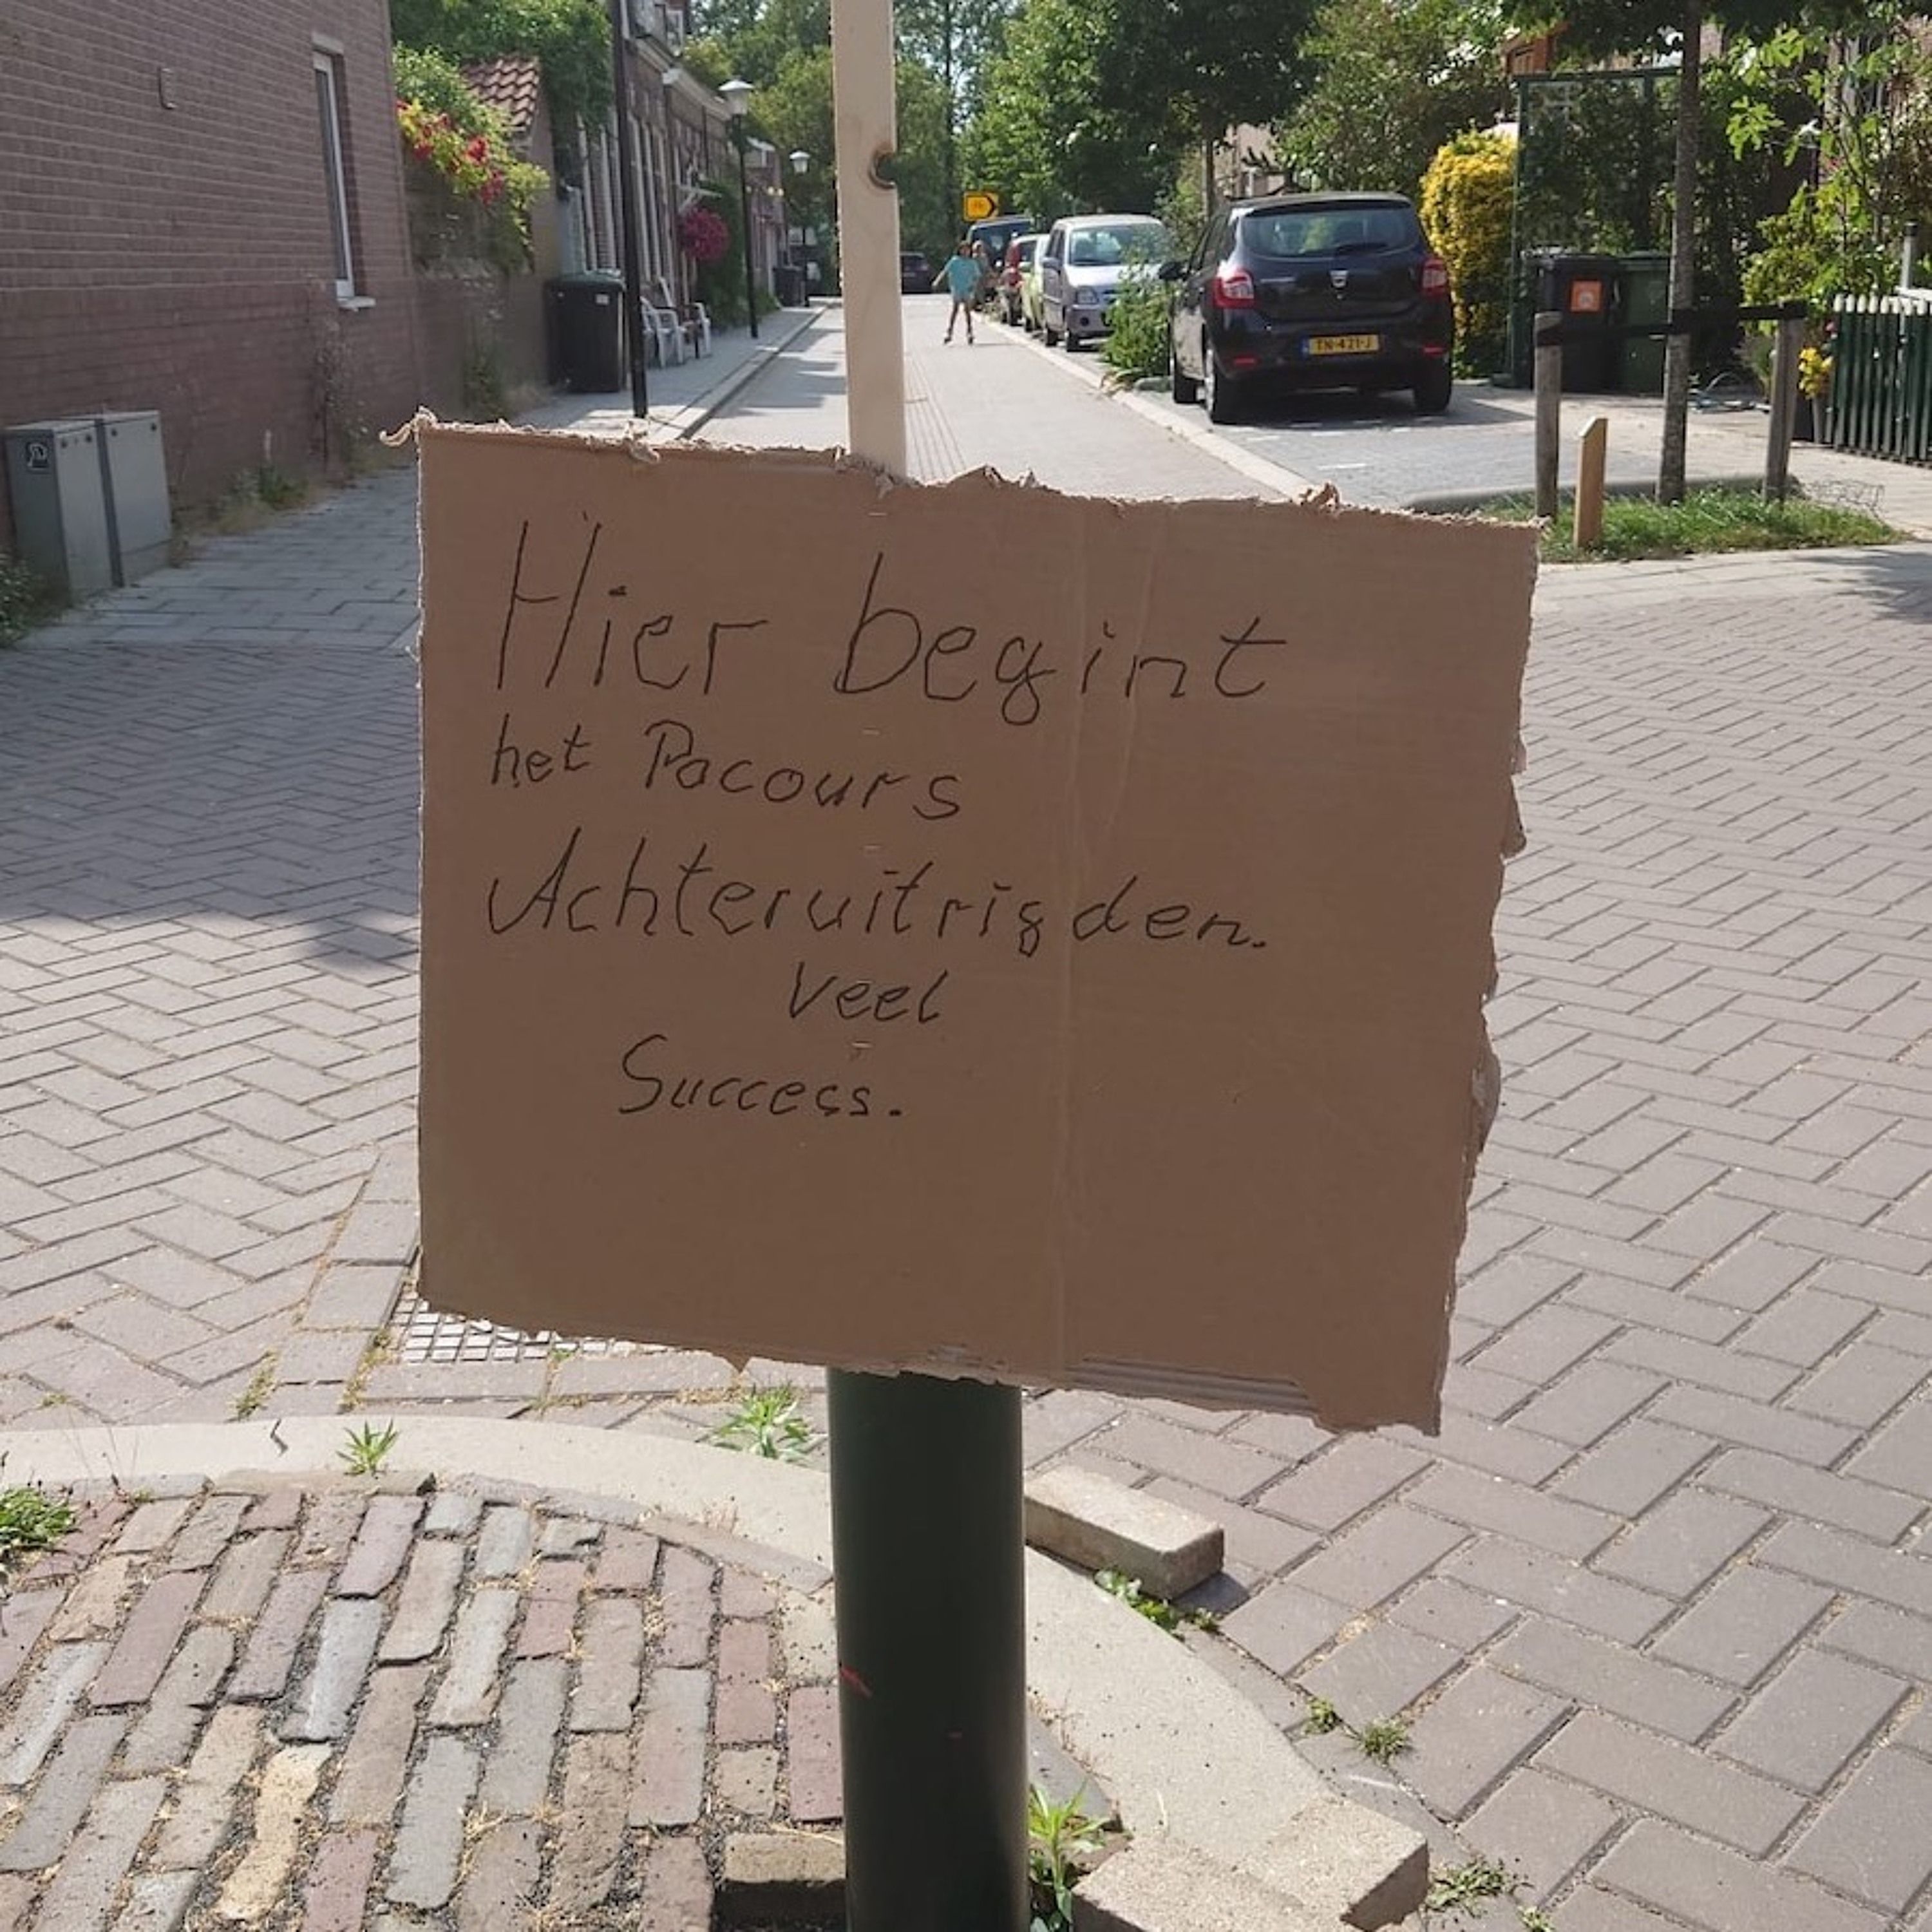 Hier begint
het Pacours
Achteruitrijden.
Veel
Success.
TN-421-J